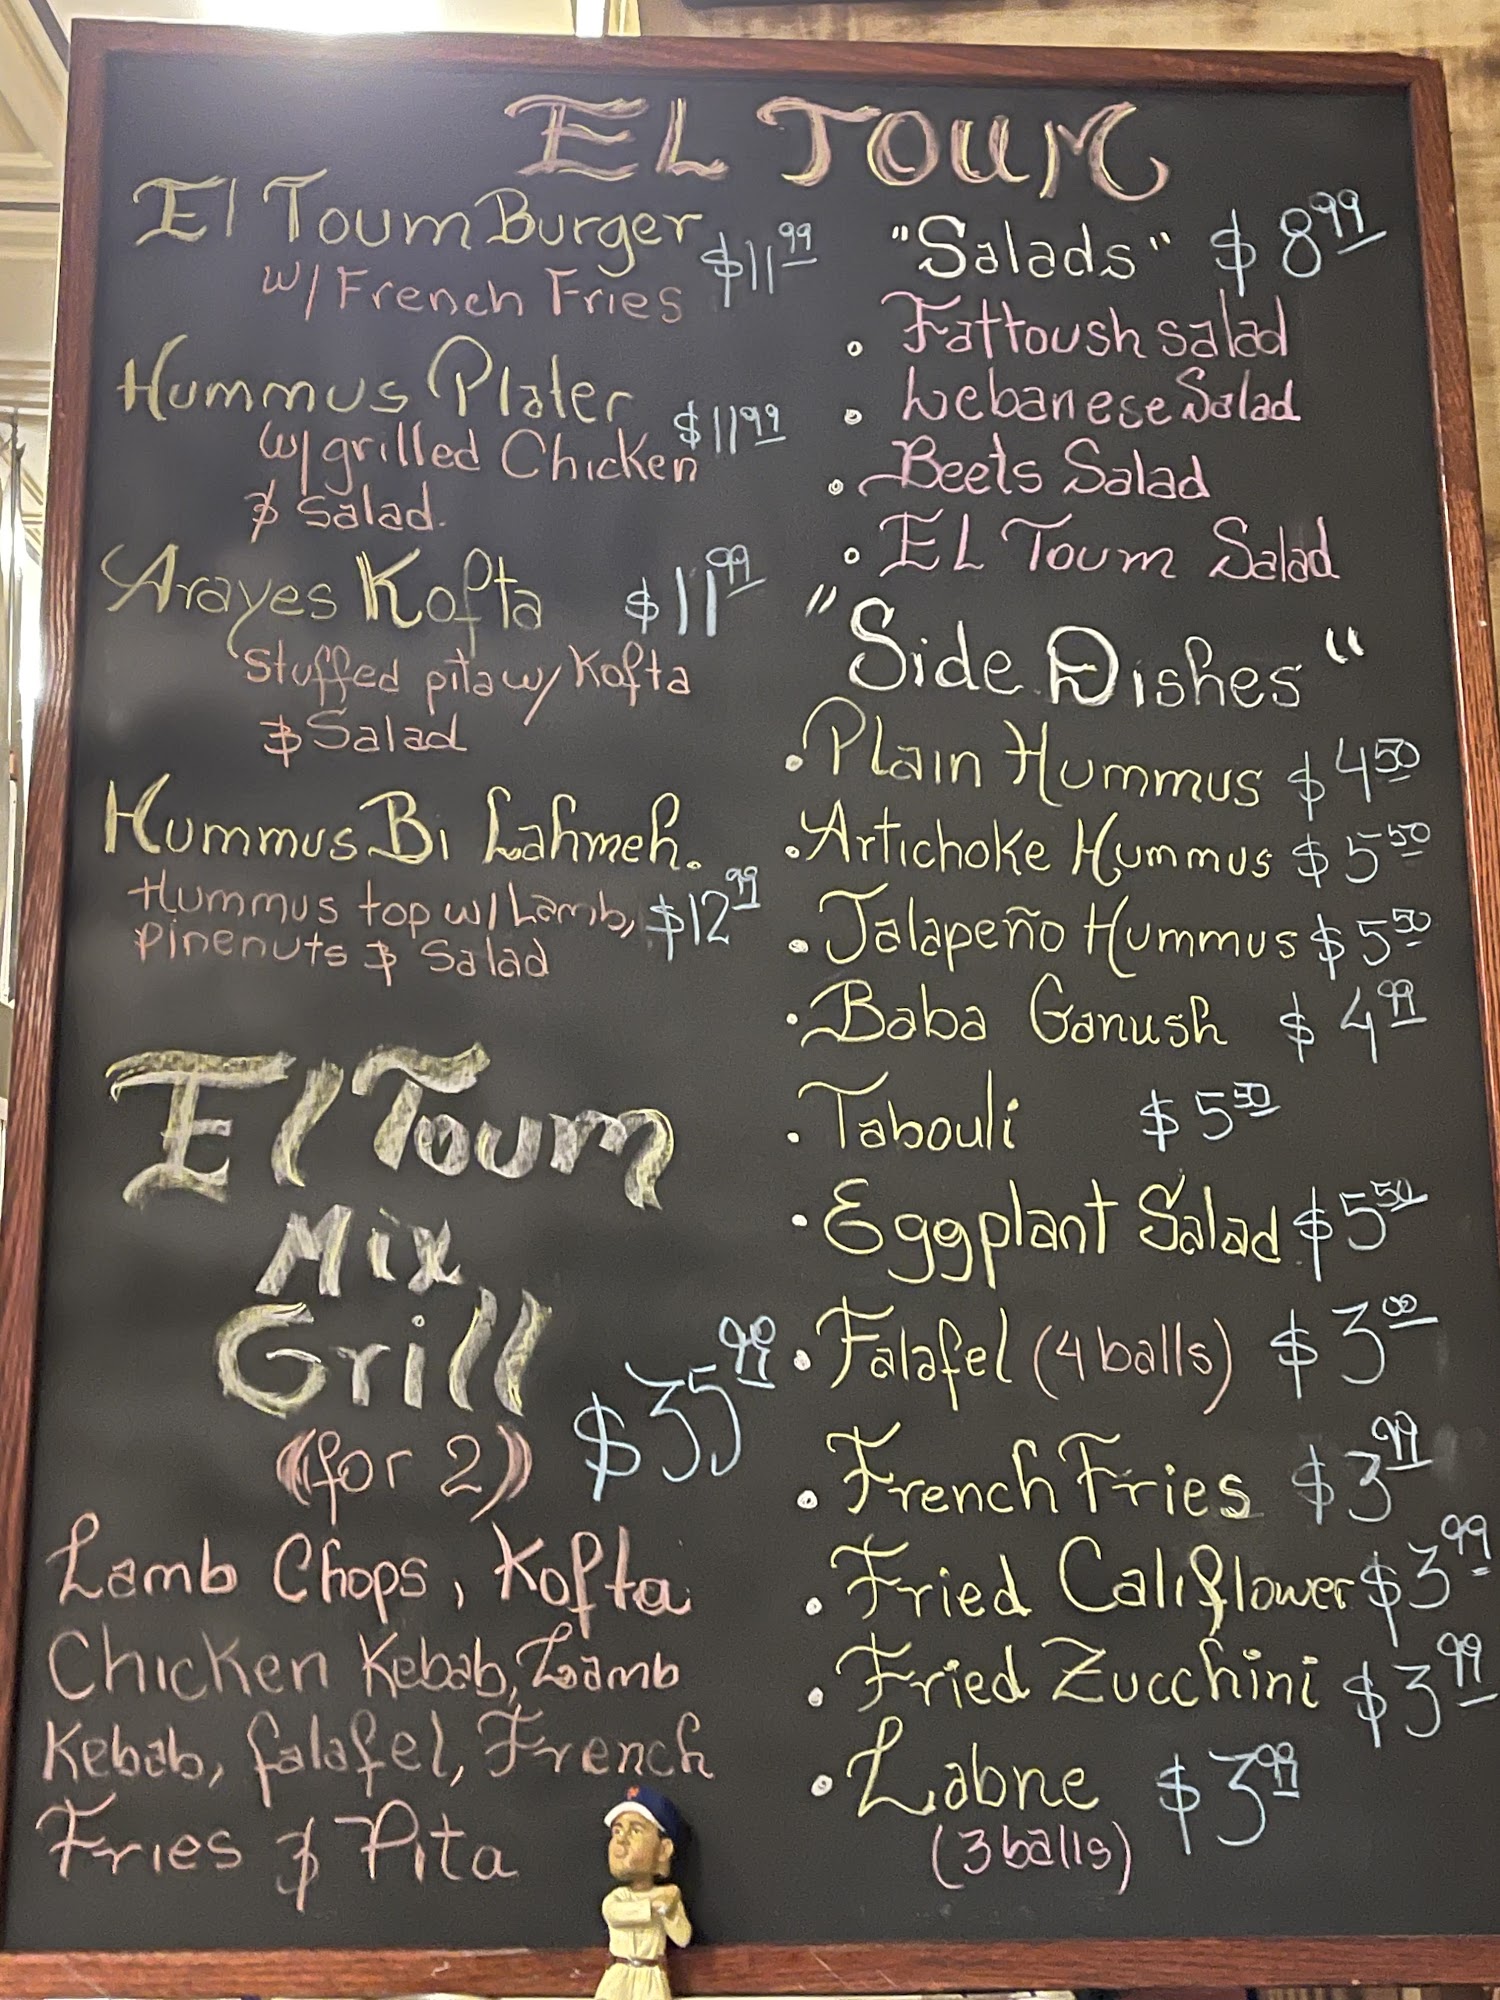 EL TOUM
El Toum Burger $11.99
w/ French Fries
Hummus Plater $11.99
w/ grilled Chicken
& Salad.
Arayes Kofta $11.99
Stuffed pita w/ Kofta
& Salad
Hummus Bi Lahmeh.
Hummus top w/ Lamb, $12.99
Pinenuts & Salad
El Toum
Mix
Grill
(for 2) $35.99
Lamb Chops, Kofta
Chicken Kebab, Lamb
Kebab, falafel, French
Fries & Pita
"Salads" $8.99
• Fattoush salad
• Lebanese Salad
• Beets Salad
• EL Toum Salad
"Side Dishes"
• Plain Hummus $4.50
• Artichoke Hummus $5.50
• Jalapeño Hummus $5.50
• Baba Ganush $4.99
• Tabouli $5.50
• Eggplant Salad $5.50
• Falafel (4 balls) $3.00
• French Fries $3.99
• Fried Califlower $3.99
• Fried Zucchini $3.99
• Labne $3.99
(3 balls)